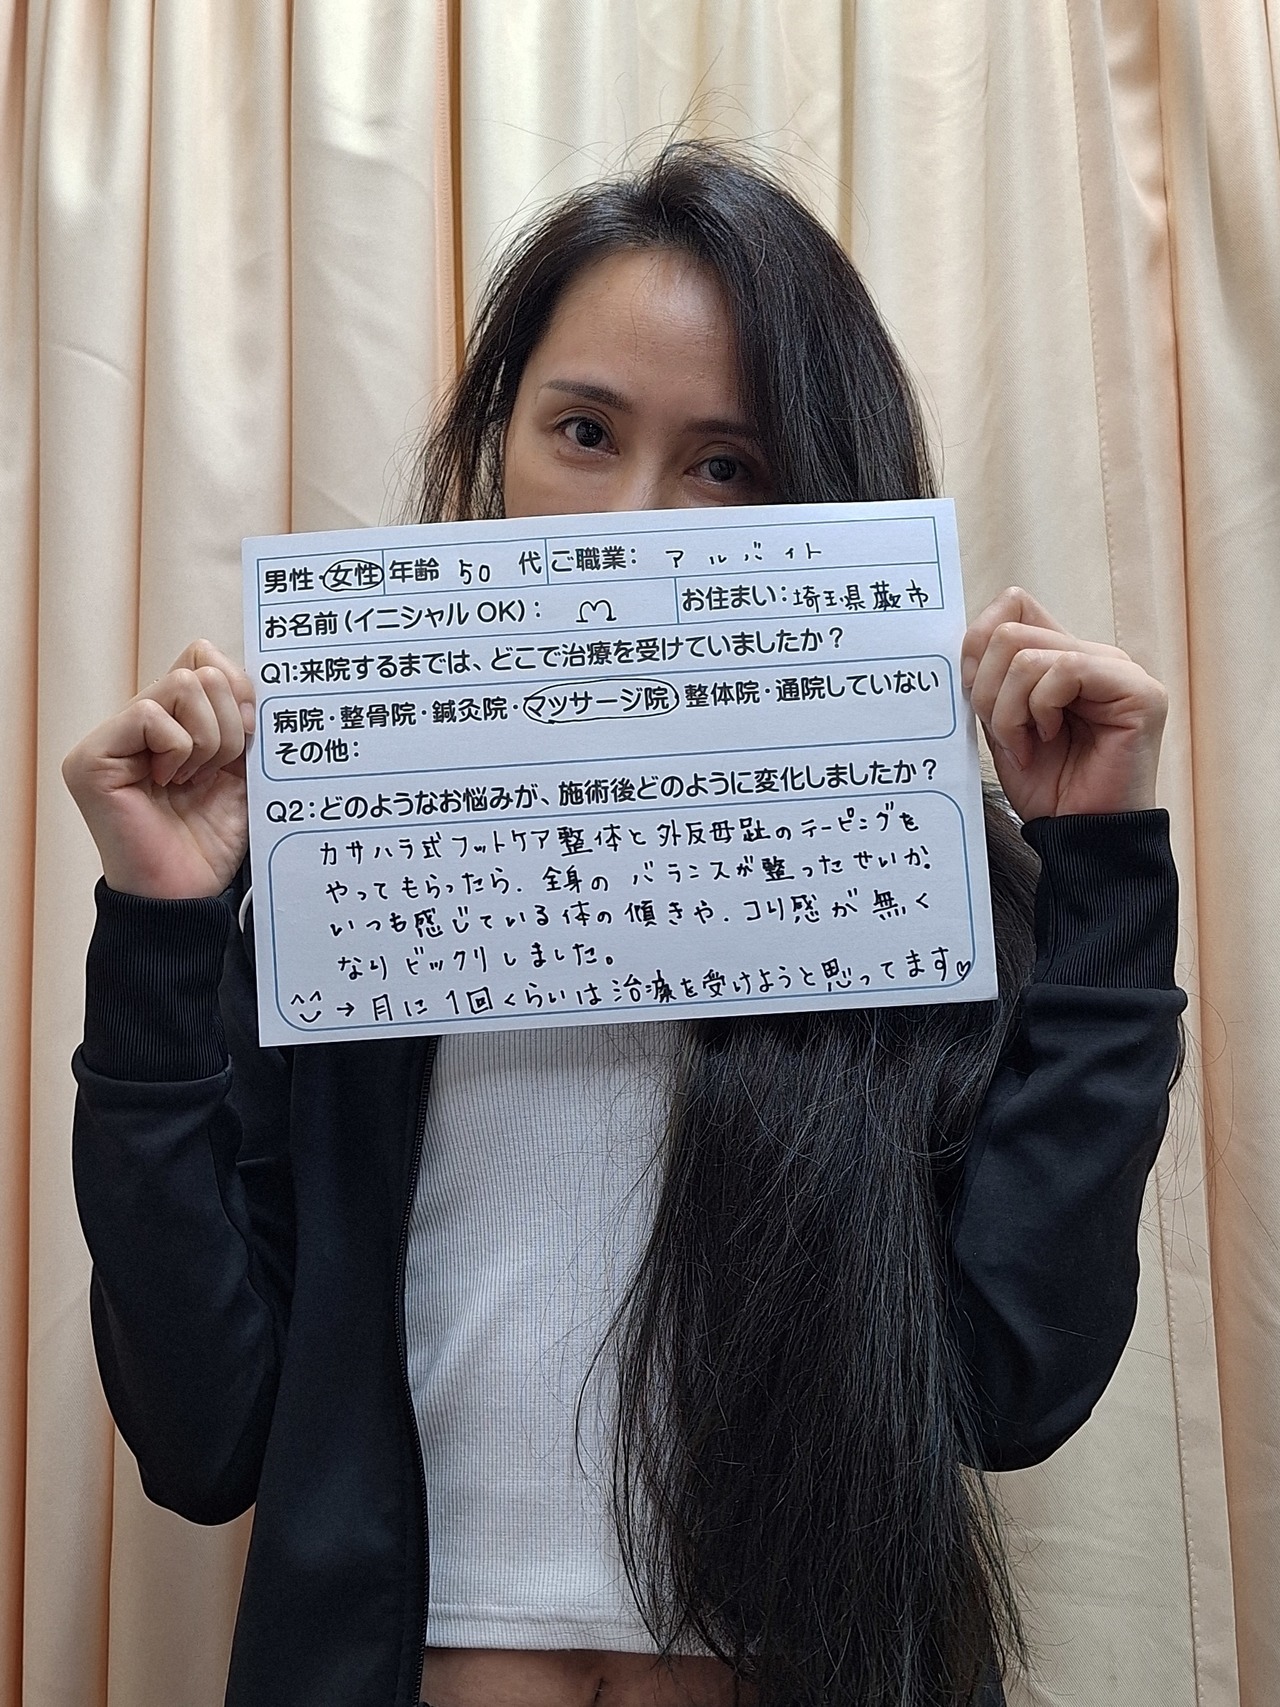 男性・女性 年齢 50 代 ご職業： アルバイト
お名前(イニシャルOK)： M お住まい：埼玉県蕨市
Q1:来院するまでは、どこで治療を受けていましたか？
病院・整骨院・鍼灸院・マッサージ院・整体院・通院していない
その他：
Q2：どのようなお悩みが、施術後どのように変化しましたか？
カサハラ式フットケア整体と外反母趾のテーピングを
やってもらったら、全身のバランスが整ったせいか。
いつも感じている体の傾きや、コリ感が無く
なりビックリしました。
^^ → 月に1回くらいは治療を受けようと思ってます♡